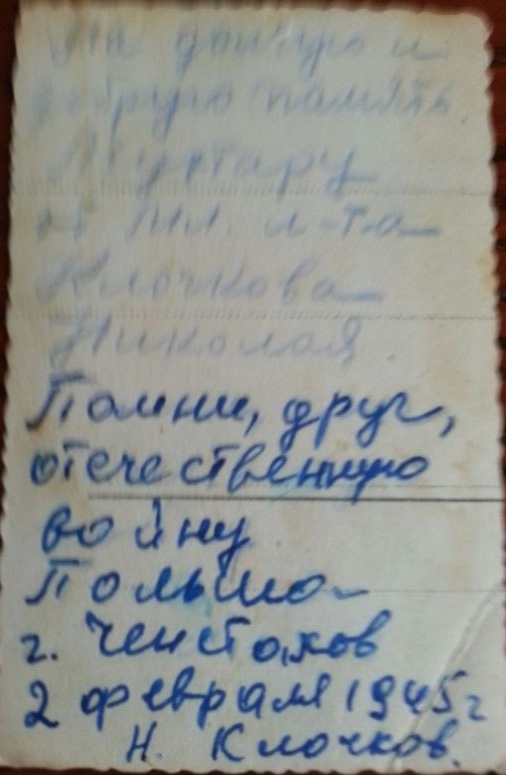 На долгую и
добрую память.
Мухтару
от мл. л-та
Клочкова
Николая.
Помни, друг,
отечественную
войну
Польша
г. Ченстохов
2 февраля 1945 г
Н. Клочков.